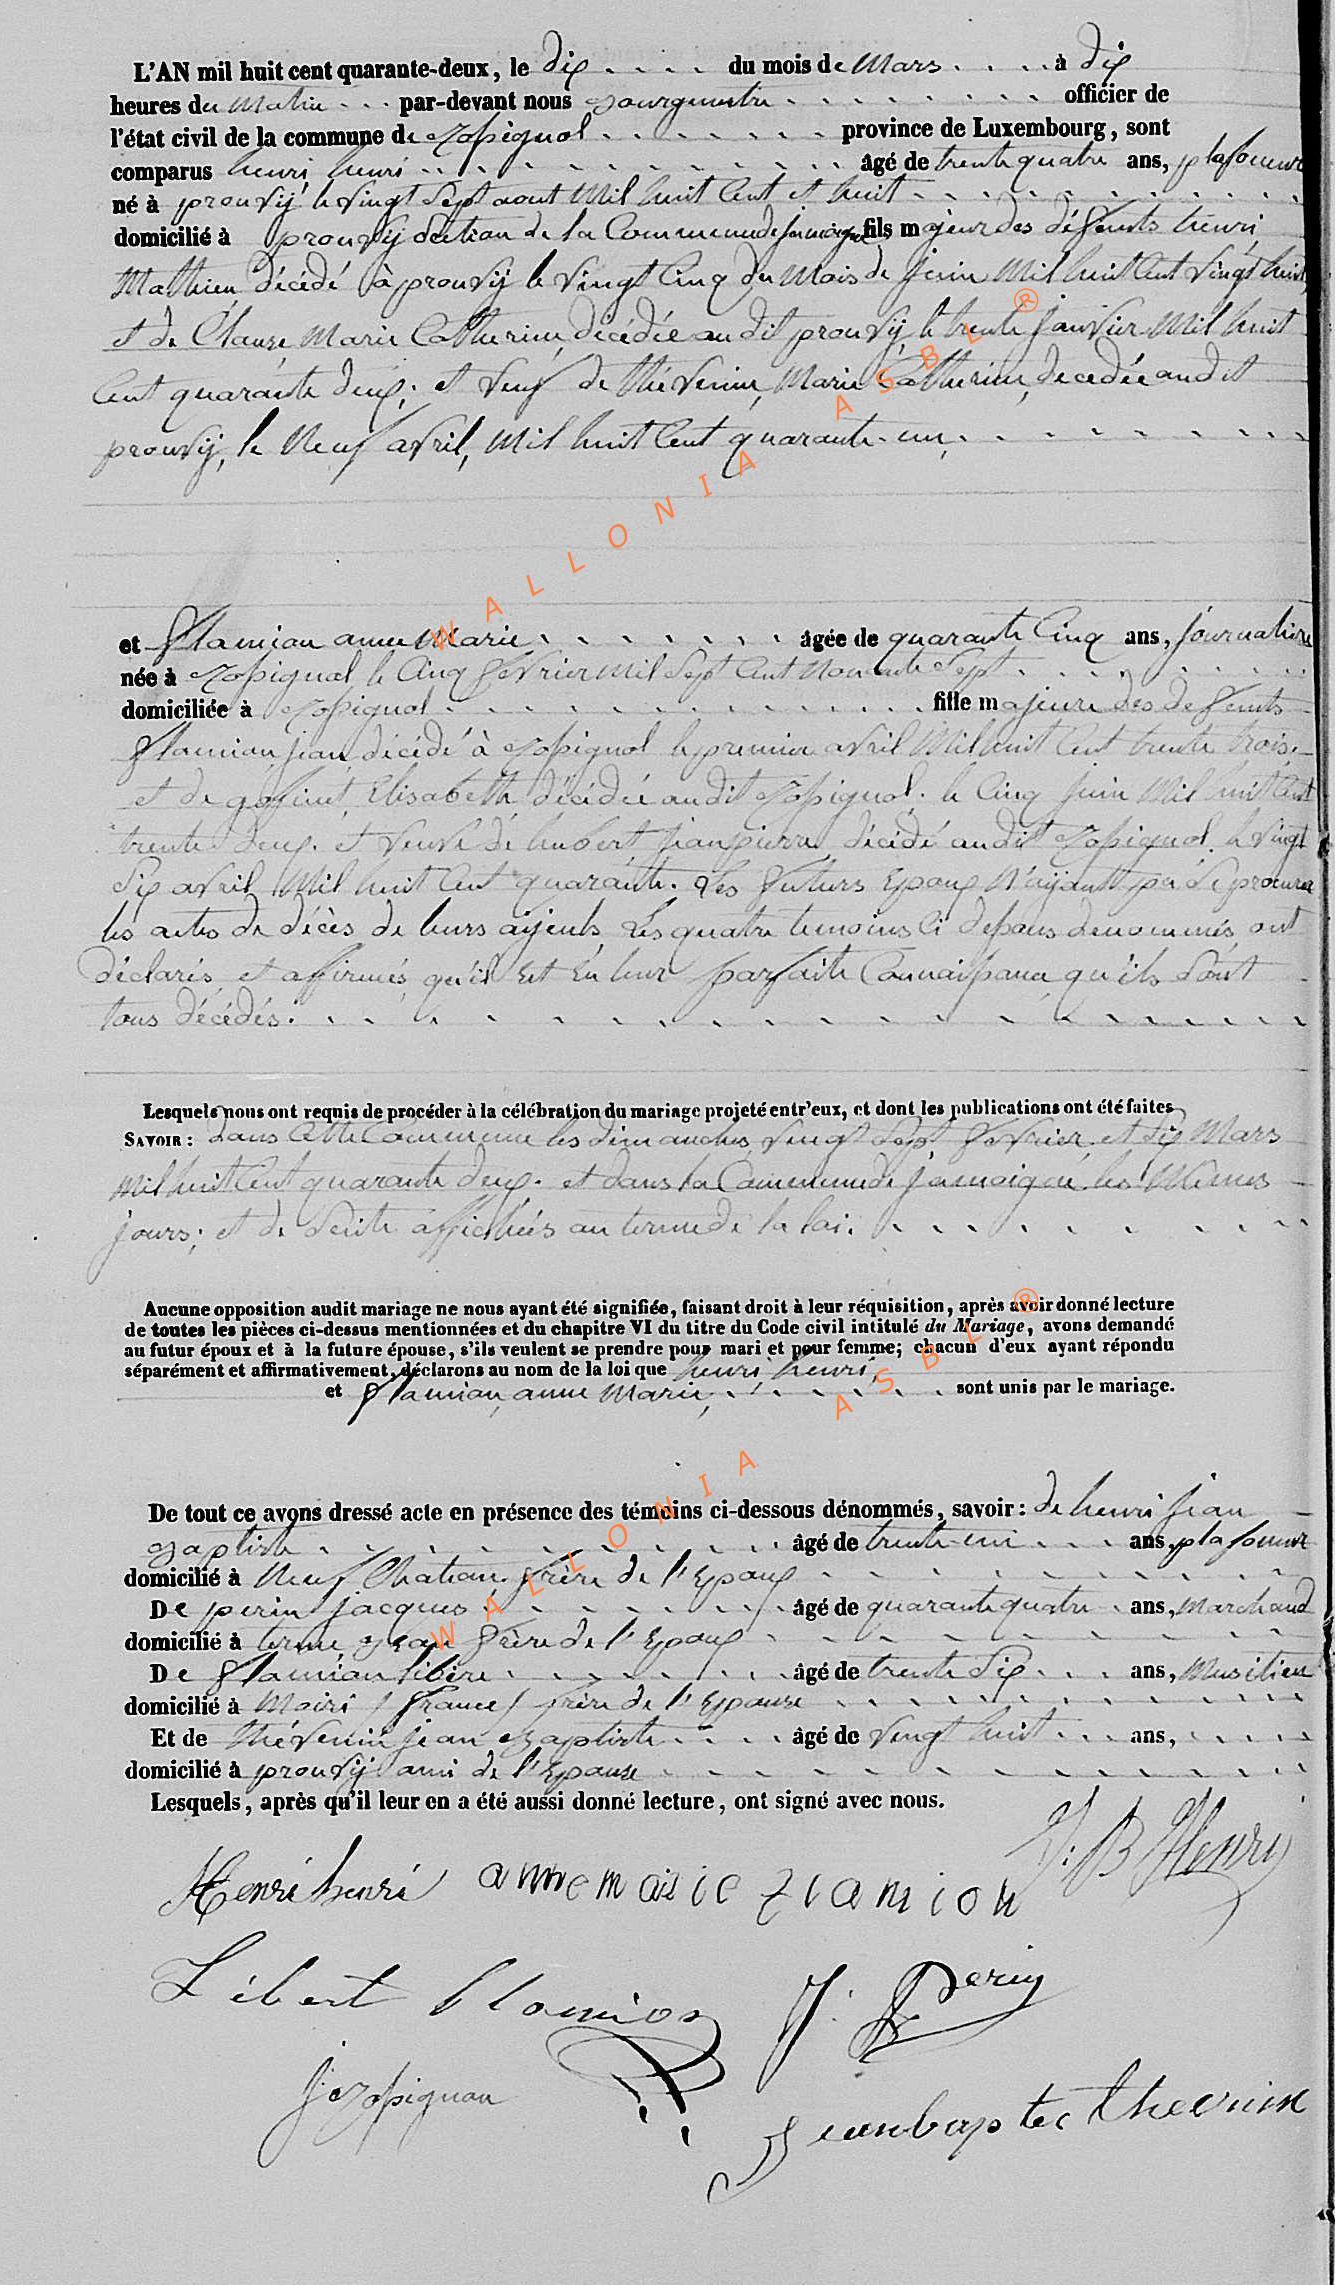 L'AN mil huit cent quarante-deux, le dix du mois de Mars à dix
heures du Matin par-devant nous officier de
l'état civil de la commune de province de Luxembourg, sont
comparus henri henri âgé de trente quatre ans, plafoneur
né à prouvÿ le vingt Sept aout Mil huit Cent et huit
domicilié à prouvÿ Section de la Commune de jamoigne fils majeur des défunts henri
Mathieu décédé à prouvÿ le vingt Cinq du Mois de juin Mil huit Cent vingt huit
et de Clause Marie Catherine, décédée au dit prouvÿ, le trente janvier Mil huit
Cent quarante deux; et veuf de thévenin, Marie Catherine, decedée au dit
prouvÿ, le Neuf avril, Mil huit Cent quarante-un,
et flamion anne Marie âgée de quarante Cinq ans, journalière
née à le Cinq février Mil Sept Cent Nonante Sept
domiciliée à fille majeure des defunts
flamion jean décédé à le premier avril Mil huit Cent trente trois
et de Elisabeth décédée au dit le Cinq juin Mil huit Cent
trente deux. et veuve de hubert jean pierre décédé au dit le vingt
Six avril Mil huit Cent quarante. Les futurs Epoux N'aÿant pu Se procurer
les actes de décès de leurs aÿeuls, Les quatre temoins Ci depous denommés, ont
déclarés et affirmés qu'il Est En leur parfaite Connaissance qu'ils Sont
tous décédés.
Lesquels nous ont requis de procéder à la célébration du mariage projeté entr'eux, et dont les publications ont été faites
SAVOIR : dans Cette Commune les dimanches vingt Sept fevrier et Six Mars
Mil huit Cent quarante deux. et dans la Commune de jamoigne les Mêmes
jours; et de Suite affichées au terme de la loi.
Aucune opposition audit mariage ne nous ayant été signifiée, faisant droit à leur réquisition, après avoir donné lecture
de toutes les pièces ci-dessus mentionnées et du chapitre VI du titre du Code civil intitulé du Mariage, avons demandé
au futur époux et à la future épouse, s'ils veulent se prendre pour mari et pour femme; chacun d'eux ayant répondu
séparément et affirmativement, déclarons au nom de la loi que henri henri,
et flamion, anne Marie, sont unis par le mariage.
De tout ce avons dressé acte en présence des témoins ci-dessous dénommés, savoir : de henri jean
Baptiste âgé de trente-un ans, plafoneur
domicilié à Neuf Chateau frère de l'Epoux
De perin jacques âgé de quarante quatre ans, Marchand
domicilié à frère de l'Epoux
De flamion libère âgé de trente Six ans, Musitien
domicilié à Moiri / france / frère de l'Epouse
Et de thévenin jean Baptiste âgé de vingt huit ans,
domicilié à prouvÿ ami de l'Epouse
Lesquels, après qu'il leur en a été aussi donné lecture, ont signé avec nous.
J: B Henry
Henri henri anne marie flamion
flamion J. Perin
jean baptes thevenin
WALLONIA ASBL ®
WALLONIA ASBL ®